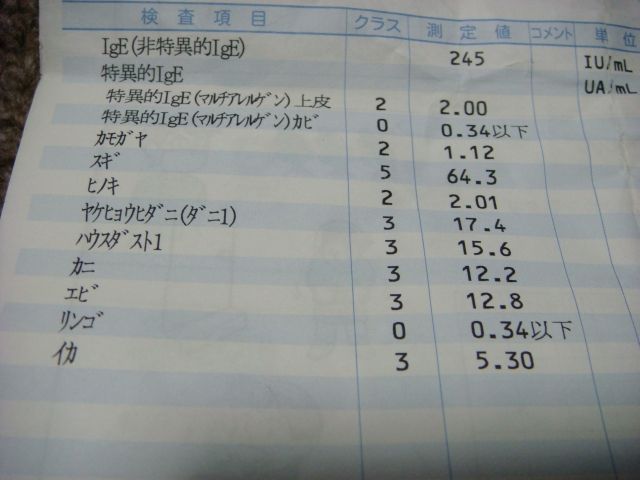 検査項目 クラス 測定値 コメント 単位
IgE(非特異的IgE) 245 IU/mL
特異的IgE UA/mL
特異的IgE(マルチアレルゲン)上皮 2 2.00
特異的IgE(マルチアレルゲン)カビ 0 0.34以下
カモガヤ 2 1.12
スギ 5 64.3
ヒノキ 2 2.01
ヤケヒョウヒダニ(ダニ1) 3 17.4
ハウスダスト1 3 15.6
カニ 3 12.2
エビ 3 12.8
リンゴ 0 0.34以下
イカ 3 5.30